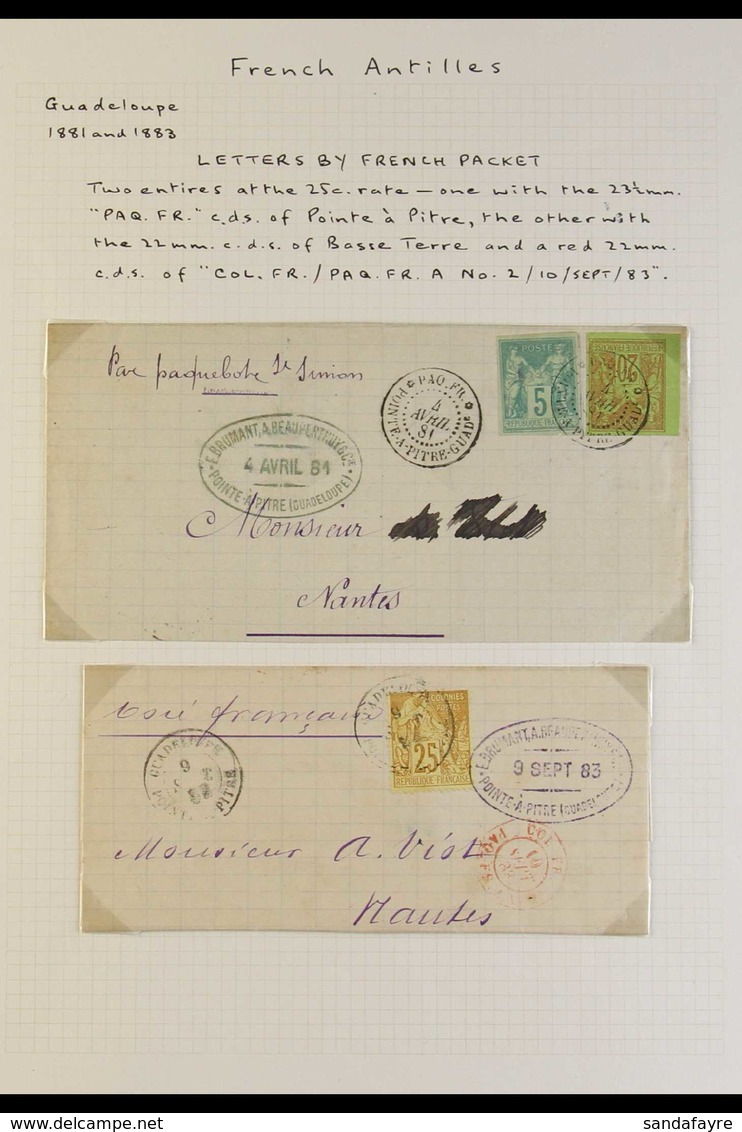 French Antilles
Guadeloupe
1881 and 1883
LETTERS BY FRENCH PACKET
Two entires at the 25c. rate — one with the 23½mm.
"PAQ. FR." c.d.s. of Pointe à Pitre, the other with
the 22mm. c.d.s. of Basse Terre and a red 22mm.
c.d.s. of "COL. FR./PAQ. FR. A No. 2/10/SEPT/83".
Par paquebot St Simon
PAQ. FR.
4
AVRIL
81
POINTE-A-PITRE-GUADE
POSTE
5
REPUBLIQUE
20
E. BRUMANT, A. BEAUPERTHUY & Cie
4 AVRIL 81
POINTE-À-PITRE (GUADELOUPE)
Monsieur
Nantes
Voie française
GUADELOUPE
9
83
PITRE
COLONIES
POSTES
25
REPUBLIQUE FRANCAISE
E. BRUMANT, A.
9 SEPT 83
POINTE-À-PITRE (GUADELOUPE)
Monsieur A. Viot
COL. FR.
Nantes
sandafayre